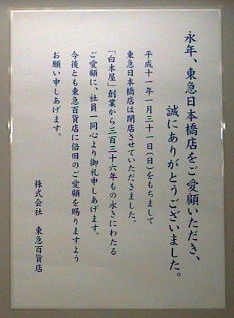 永年、東急日本橋店をご愛顧いただき、
誠にありがとうございました。
平成十一年一月三十一日(日)をもちまして
東急日本橋店は閉店させていただきました。
「白木屋」創業から三百三十六年もの永きにわたる
ご愛顧に、社員一同心より御礼申しあげます。
今後とも東急百貨店に倍旧のご愛顧を賜りますよう
お願い申しあげます。
株式会社 東急百貨店